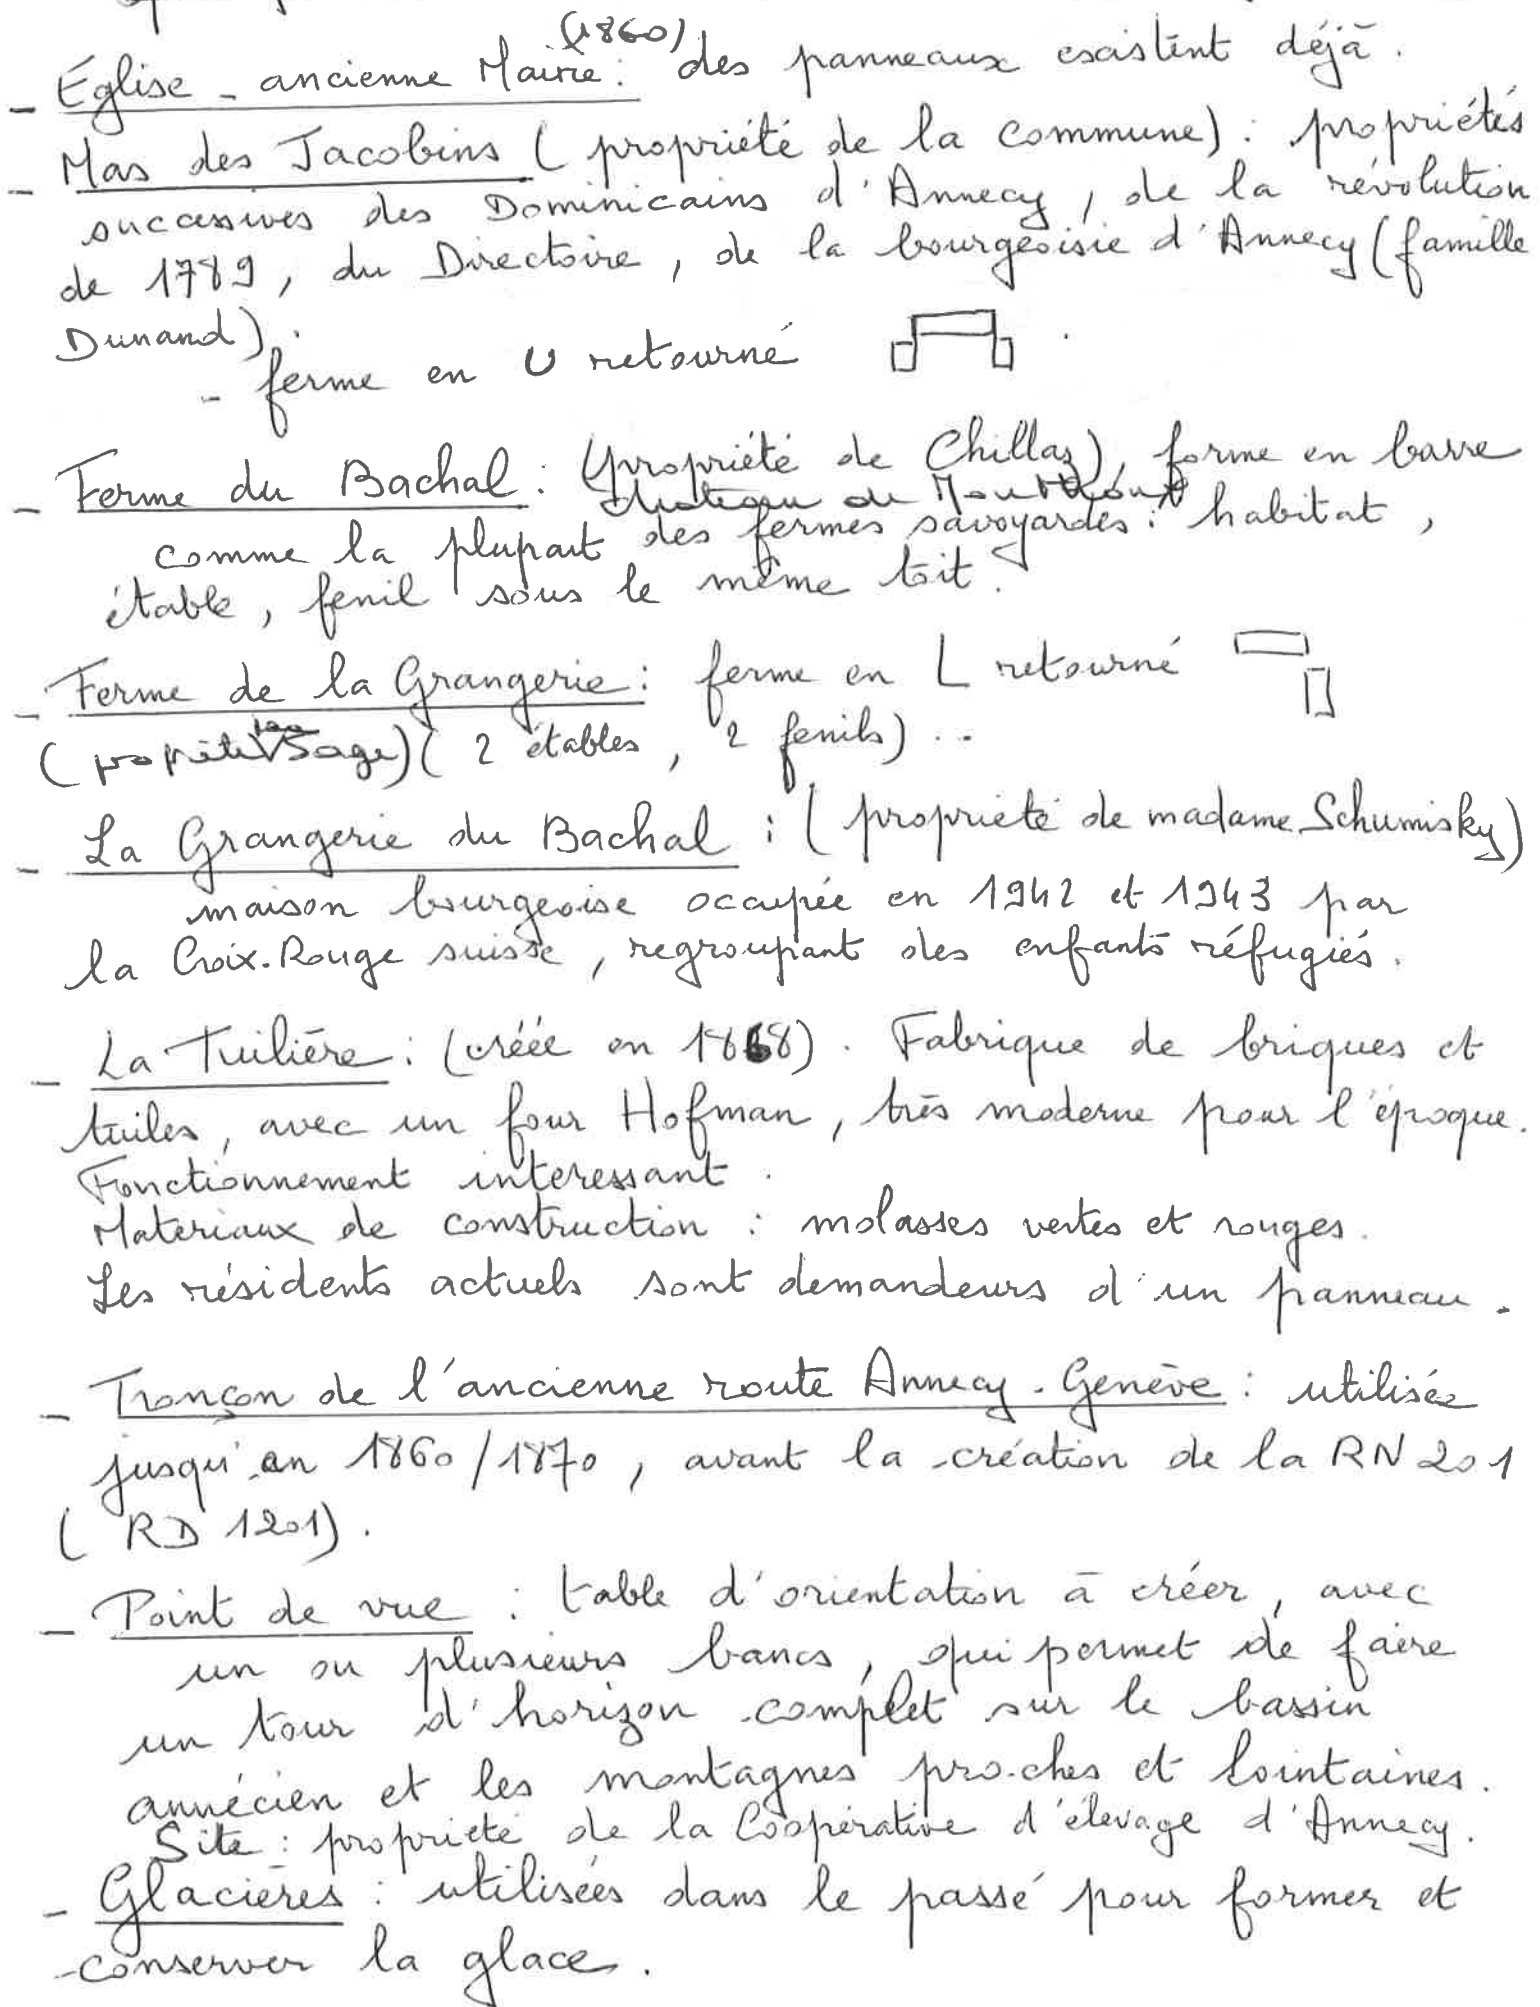 (1860)
- Église - ancienne Mairie : des panneaux existent déjà.
- Mas des Jacobins ( propriété de la commune) : propriétés
successives des Dominicains d'Annecy, de la révolution
de 1789, du Directoire, de la bourgeoisie d'Annecy (famille
Dunand).
- ferme en U retourné
- Ferme du Bachal : (propriété de Chillaz), forme en barre
château de
comme la plupart des fermes savoyardes : habitat,
étable, fenil sous le même toit.
- Ferme de la Grangerie : ferme en L retourné
(propriété Sage) ( 2 étables, 2 fenils) ..
- La Grangerie du Bachal : ( propriété de madame Schumisky)
maison bourgeoise occupée en 1942 et 1943 par
la Croix-Rouge suisse, regroupant des enfants réfugiés.
- La Tuilière : (créée en 1868). Fabrique de briques et
tuiles, avec un four Hofman, très moderne pour l'époque.
Fonctionnement interessant.
Materiaux de construction : molasses vertes et rouges.
Les résidents actuels sont demandeurs d'un panneau.
- Tronçon de l'ancienne route Annecy-Genève : utilisée
jusqu'en 1860/1870, avant la création de la RN 201
( RD 1201).
- Point de vue : table d'orientation à créer, avec
un ou plusieurs bancs, qui permet de faire
un tour d'horizon complet sur le bassin
annécien et les montagnes proches et lointaines.
Site : propriété de la Coopérative d'élevage d'Annecy.
- Glacières : utilisées dans le passé pour former et
conserver la glace.